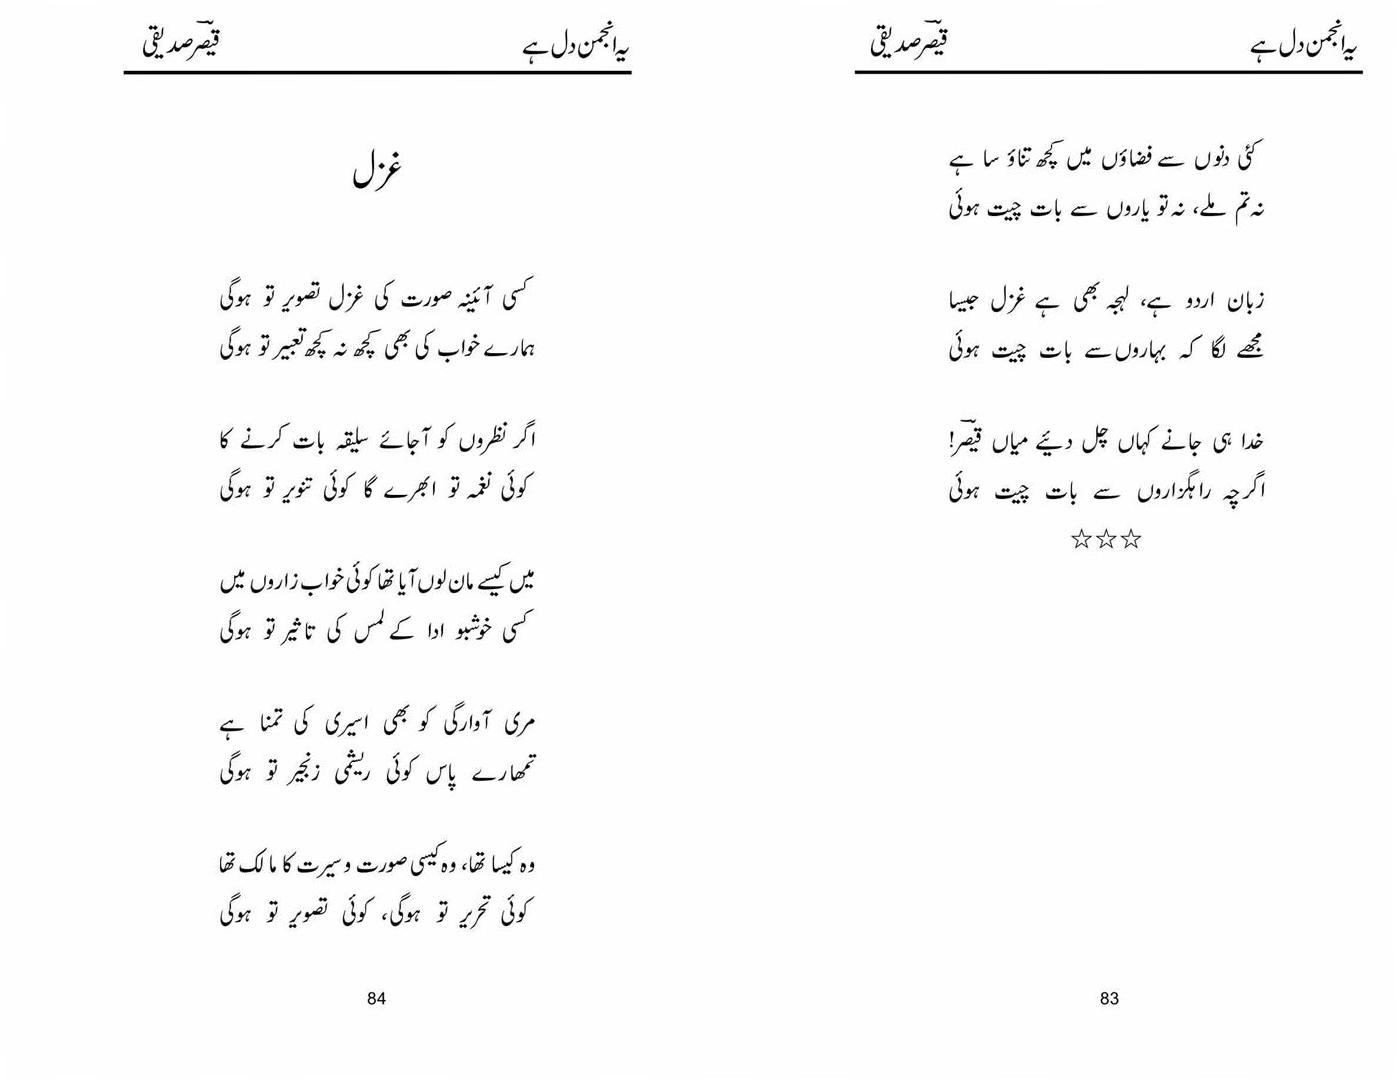 یہ انجمن دل ہے قیصؔر صدیقی
کئی دنوں سے فضاؤں میں کچھ تناؤ سا ہے
نہ تم ملے، نہ تو یاروں سے بات چیت ہوئی
زبان اردو ہے، لہجہ بھی ہے غزل جیسا
مجھے لگا کہ بہاروں سے بات چیت ہوئی
خدا ہی جانے کہاں چل دئیے میاں قیصؔر!
اگرچہ راہگزاروں سے بات چیت ہوئی
☆☆☆
83
یہ انجمن دل ہے قیصؔر صدیقی
غزل
کسی آئینہ صورت کی غزل تصویر تو ہوگی
ہمارے خواب کی بھی کچھ نہ کچھ تعبیر تو ہوگی
اگر نظروں کو آجائے سلیقہ بات کرنے کا
کوئی نغمہ تو ابھرے گا کوئی تنویر تو ہوگی
میں کیسے مان لوں آیا تھا کوئی خواب زاروں میں
کسی خوشبو ادا کے لمس کی تاثیر تو ہوگی
مری آوارگی کو بھی اسیری کی تمنا ہے
تمھارے پاس کوئی ریشمی زنجیر تو ہوگی
وہ کیسا تھا، وہ کیسی صورت و سیرت کا مالک تھا
کوئی تحریر تو ہوگی، کوئی تصویر تو ہوگی
84